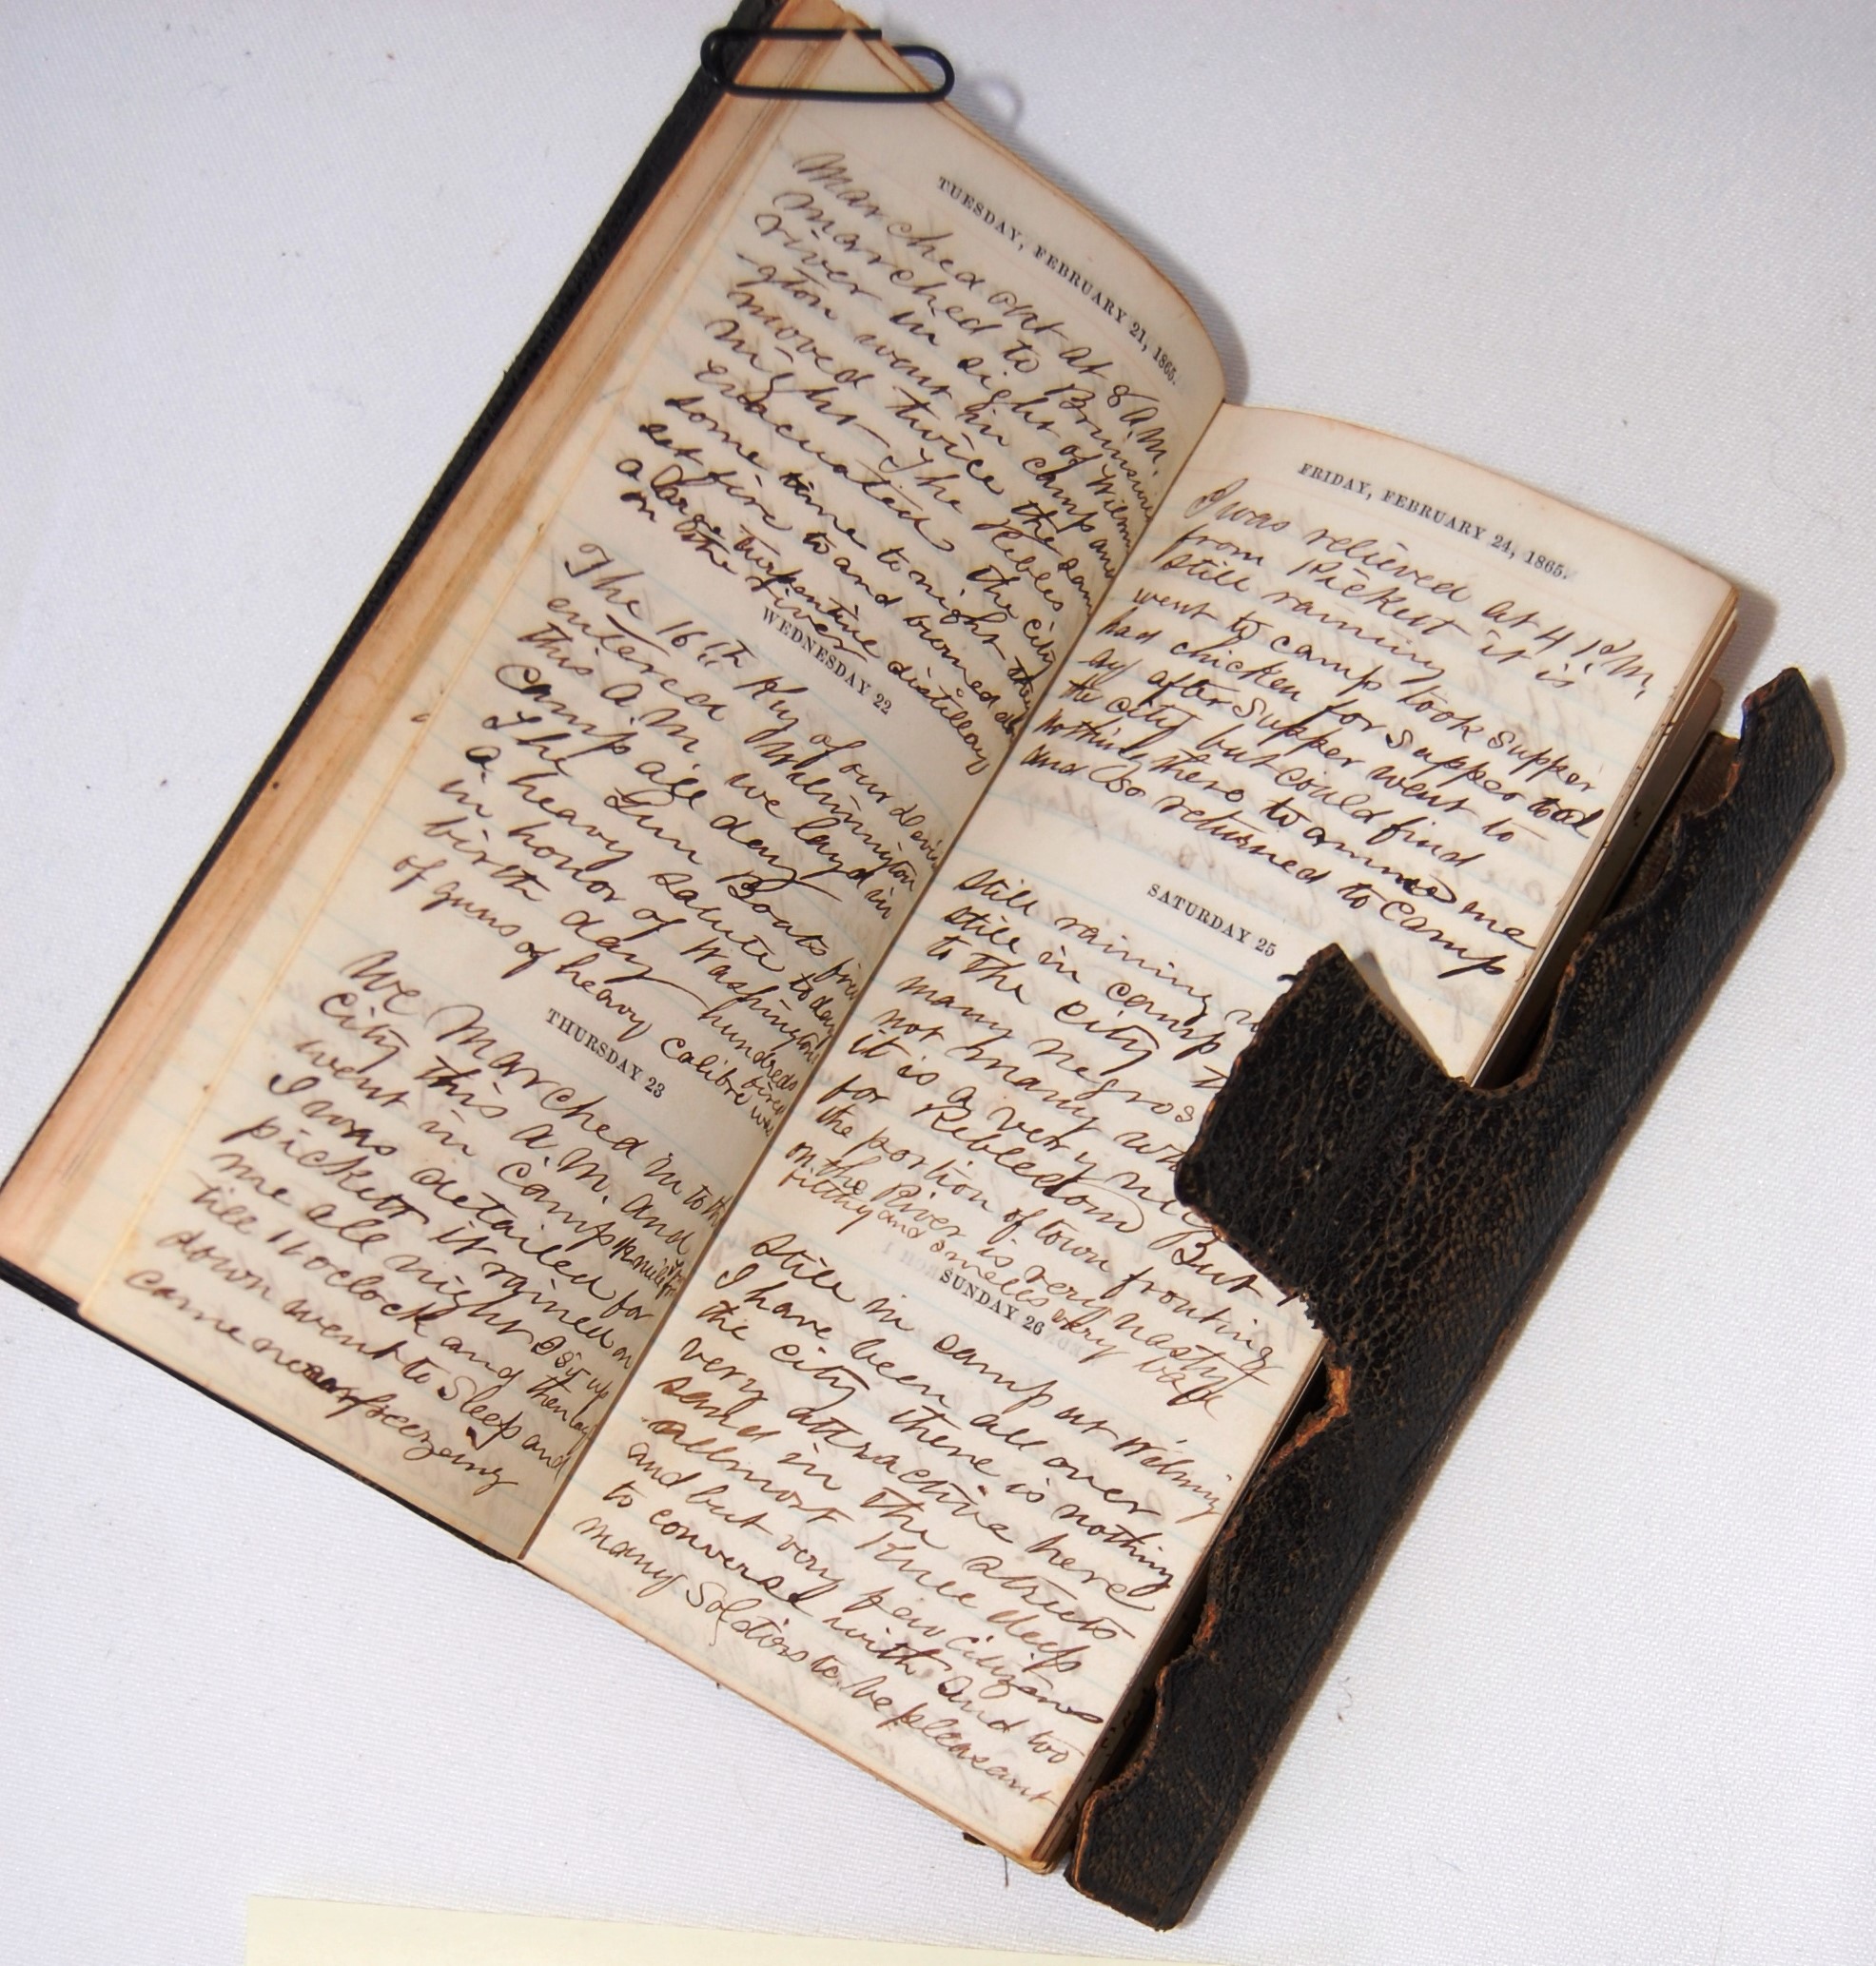 TUESDAY, FEBRUARY 21, 1865.
Marched out at 8 A.M.
marched to Brunswick
river in sight of Wilmin
-gton went in camp and
moved twice the same
night The Rebles
evacuated the city
some time to night they
set fire to and burned
a large turpentine distillery
on the river
WEDNESDAY 22
The 16th Ky of our Devis
entered Wilmington
this A.M. we layd in
Camp all day
The Gun Boats fired
a heavy salute to day
in honor of Washingtons
birth day hundreds
of guns of heavy Calibre were
fired
THURSDAY 23
We Marched in to the
City this A.M. and
went in Camp
I was detailed for
pickett it rained on
me all night I sit up
till 11 oclock and then lay
down went to Sleep and
came near freezeing
FRIDAY, FEBRUARY 24, 1865.
I was relieved at 4 P.M.
from Pickett it is
still raining
went to camp took Supper
had chicken for Supper tod
ay after Supper went to
the city but could find
nothing there to ammuse me
and so returned to Camp
SATURDAY 25
Still raining
Still in camp
to the City
many negros
not many
it is a very
for Rebledom But
the portion of town fronting
on the River is very nasty
filthy and smells very bad
SUNDAY 26
Still in camp at Wilming
I have been all over
the city there is nothing
very attractive here
sand in the streets
allmost Knee deep
and but very few Citizens
to converse with and too
many Soldiers to be pleasant